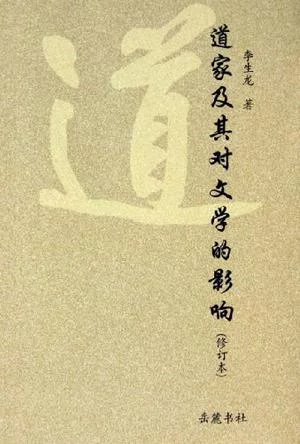 道
道家及其对文学的影响
(修订本)
李生龙 著
岳麓书社